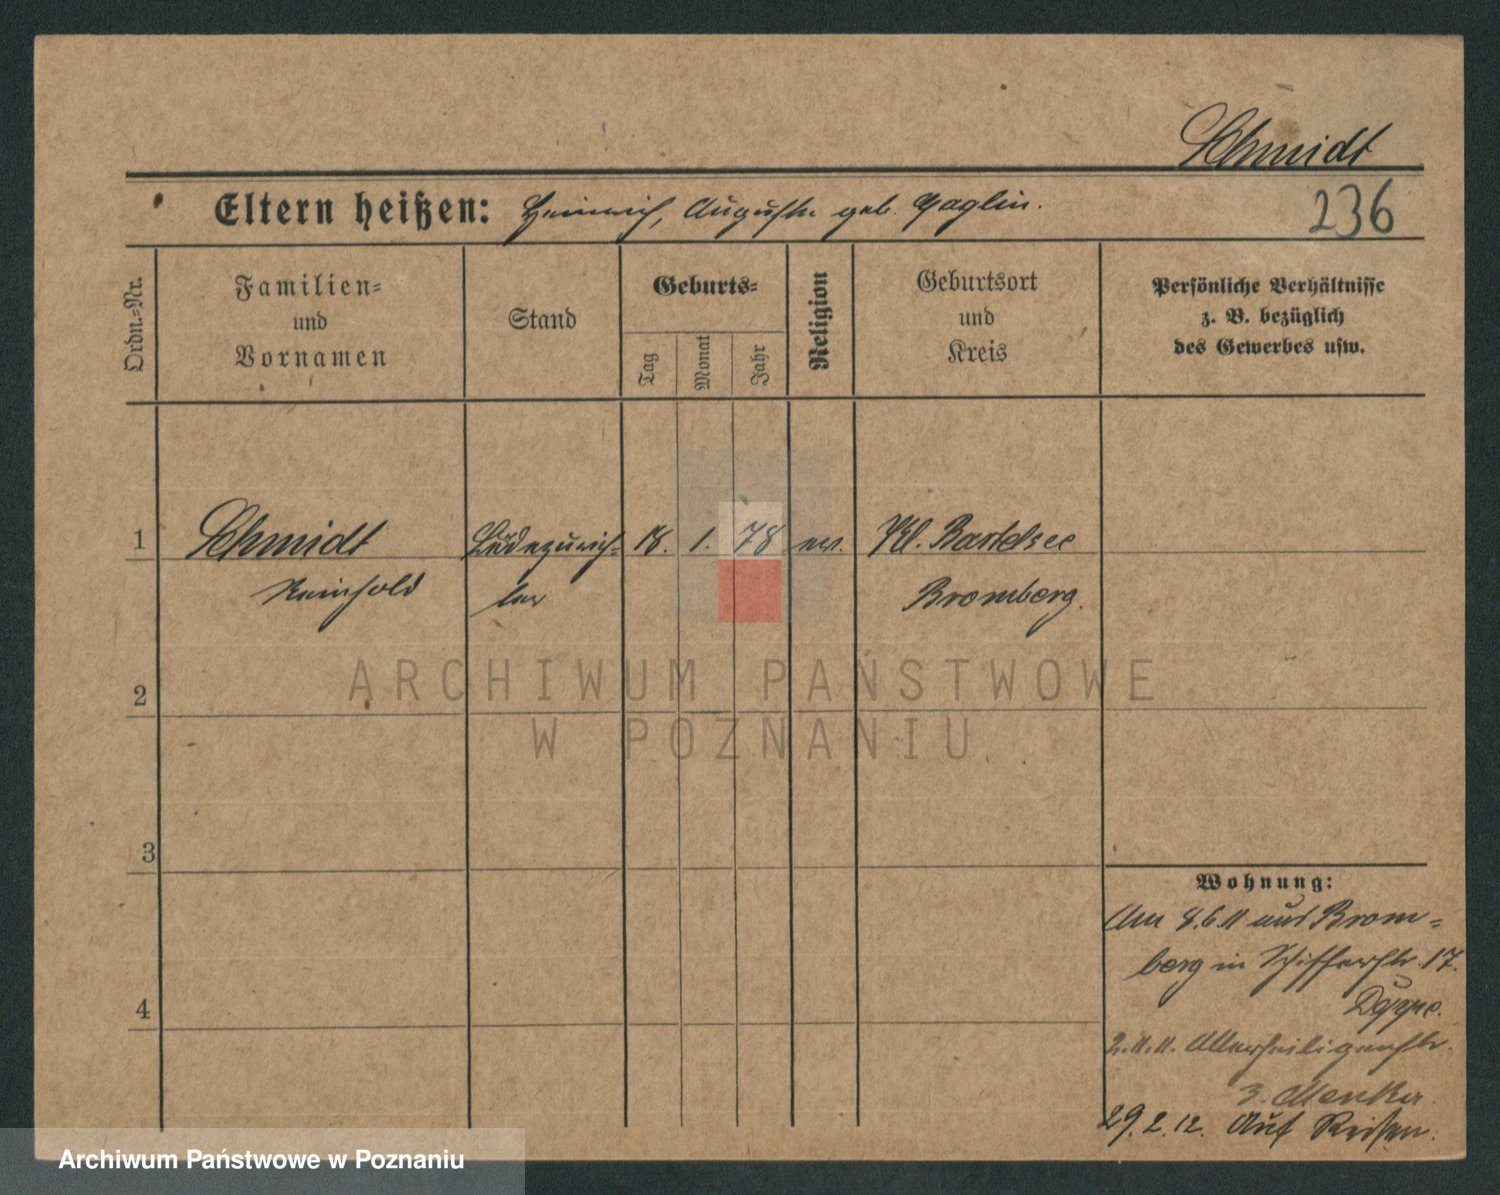 Schmidt
Eltern heißen: Heinrich, Auguste geb. Gaglin.
236
Ordn.-Nr.
Familien-
und
Vornamen
Stand
Geburts-
Tag
Monat
Jahr
Religion
Geburtsort
und
Kreis
Persönliche Verhältnisse
z. B. bezüglich
des Gewerbes usw.
1 Schmidt 18. 1. 78 ev. Kl. Bartelsee
Reinhold Bromberg.
ARCHIWUM PAŃSTWOWE
W POZNANIU
2
3
4
Wohnung:
Am 8.6.11 aus Brom-
berg in Schifferstr. 17.
2.11.11. Allerheiligenstr.
3.
29.2.12. Auf Reisen.
Archiwum Państwowe w Poznaniu